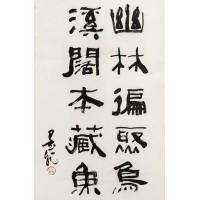 幽林遍聚鳥
溪闊本藏魚